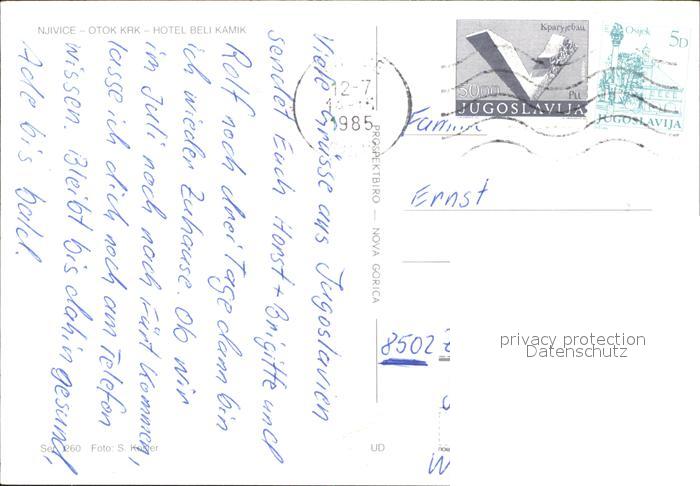 NJIVICE – OTOK KRK – HOTEL BELI KAMIK
Viele Grüsse aus Jugoslavien
sendet Euch Horst + Brigitte und
Rolf noch drei Tage dann bin
ich wieder Zuhause. Ob wir
im Juli noch nach Fürt kommen,
lasse ich dich noch am Telefon
wissen. Bleibt bis dahin gesund,
Ade bis bald.
Foto: S. Koder
UD
PROSPEKTBIRO — NOVA GORICA
12-7
1985
Крагујевац
5000
JUGOSLAVIJA
Osijek
5D
JUGOSLAVIJA
Familie
Ernst
8502
privacy protection
Datenschutz